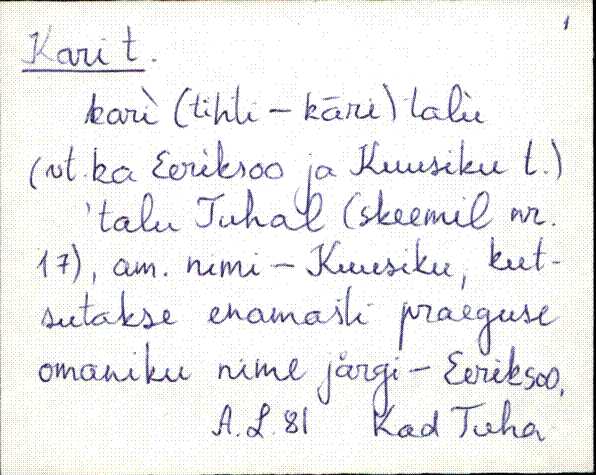 1
Kari t.
karì (tihti – kāri) talù
(vt. ka Eeriksoo ja Kuusiku t.)
'talu Tuhal (skeemil nr.
17), am. nimi – Kuusiku, kut-
sutakse enamasti praeguse
omaniku nime järgi – Eeriksoo.
A.L. 81 Kad Tuha